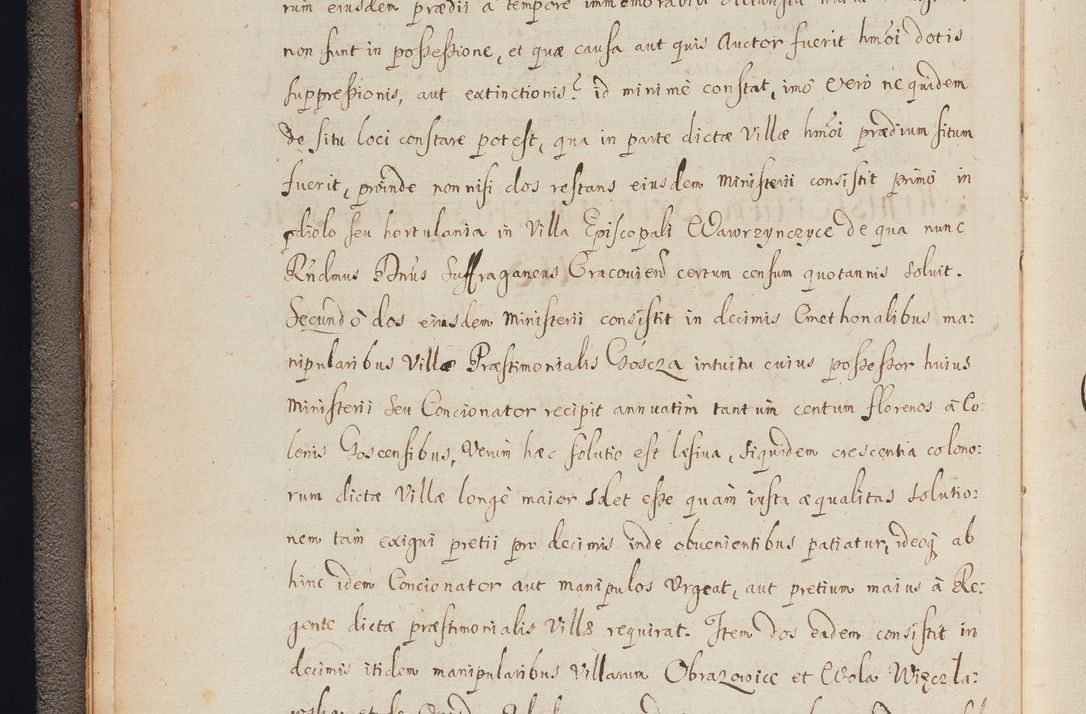 rum eiusdem prædii a tempore immemorabili
non sunt in possessione, et quæ causa aut quis Auctor fuerit hmōi dotis
suppressionis, aut extinctionis? id minimè constat, imò verò ne quidem
de situ loci constare potest, qua in parte dictæ Villæ hmōi prædium situm
fuerit, proinde non nisi dos restans eiusdem Ministerii consistit primò in
prdiolo seu hortulania in Villa Episcopali Wawrzynczyce de qua nunc
Rńdmus Dnus Suffraganeus Cracovien̄ certum censum quotannis soluit.
Secundò dos eiusdem Ministerii consistit in decimis Cmethonalibus ma:
nipularibus Villæ Præstimonialis Goscza intuitu cuius possessor huius
Ministerii seu Concionator recipit annuatim tantum centum florenos à Co:
lonis Goscensibus, Verùm hæc solutio est læsiua, siquidem crescentia colono:
rum dictæ Villæ longè maior solet esse quàm iusta æqualitas solutio:
nem tàm exigui pretii pro decimis inde obuenientibus patiatur, ideoq ab
hinc idem Concionator aut manipulos Urgeat, aut pretium maius à Re:
gente dictæ præstimonialis Villæ requirat. Item dos eadem consistit in
decimis itidem manipularibus Villarum Obrazowice et Wola Więczła: